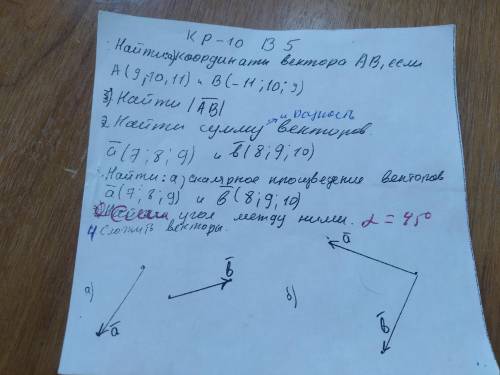 КР-10 В 5
1. Найти координаты вектора AB, если
A(9;10,11) и B(-11;10;9)
3) Найти |AB|
и разность
2. Найти сумму векторов
a(7;8;9) и b(8;9;10)
Найти: а) скалярное произведение векторов
a(7;8;9) и b(8;9;10)
Если угол между ними. α = 45°
4 Сложить векторы.
а) a b б) a b